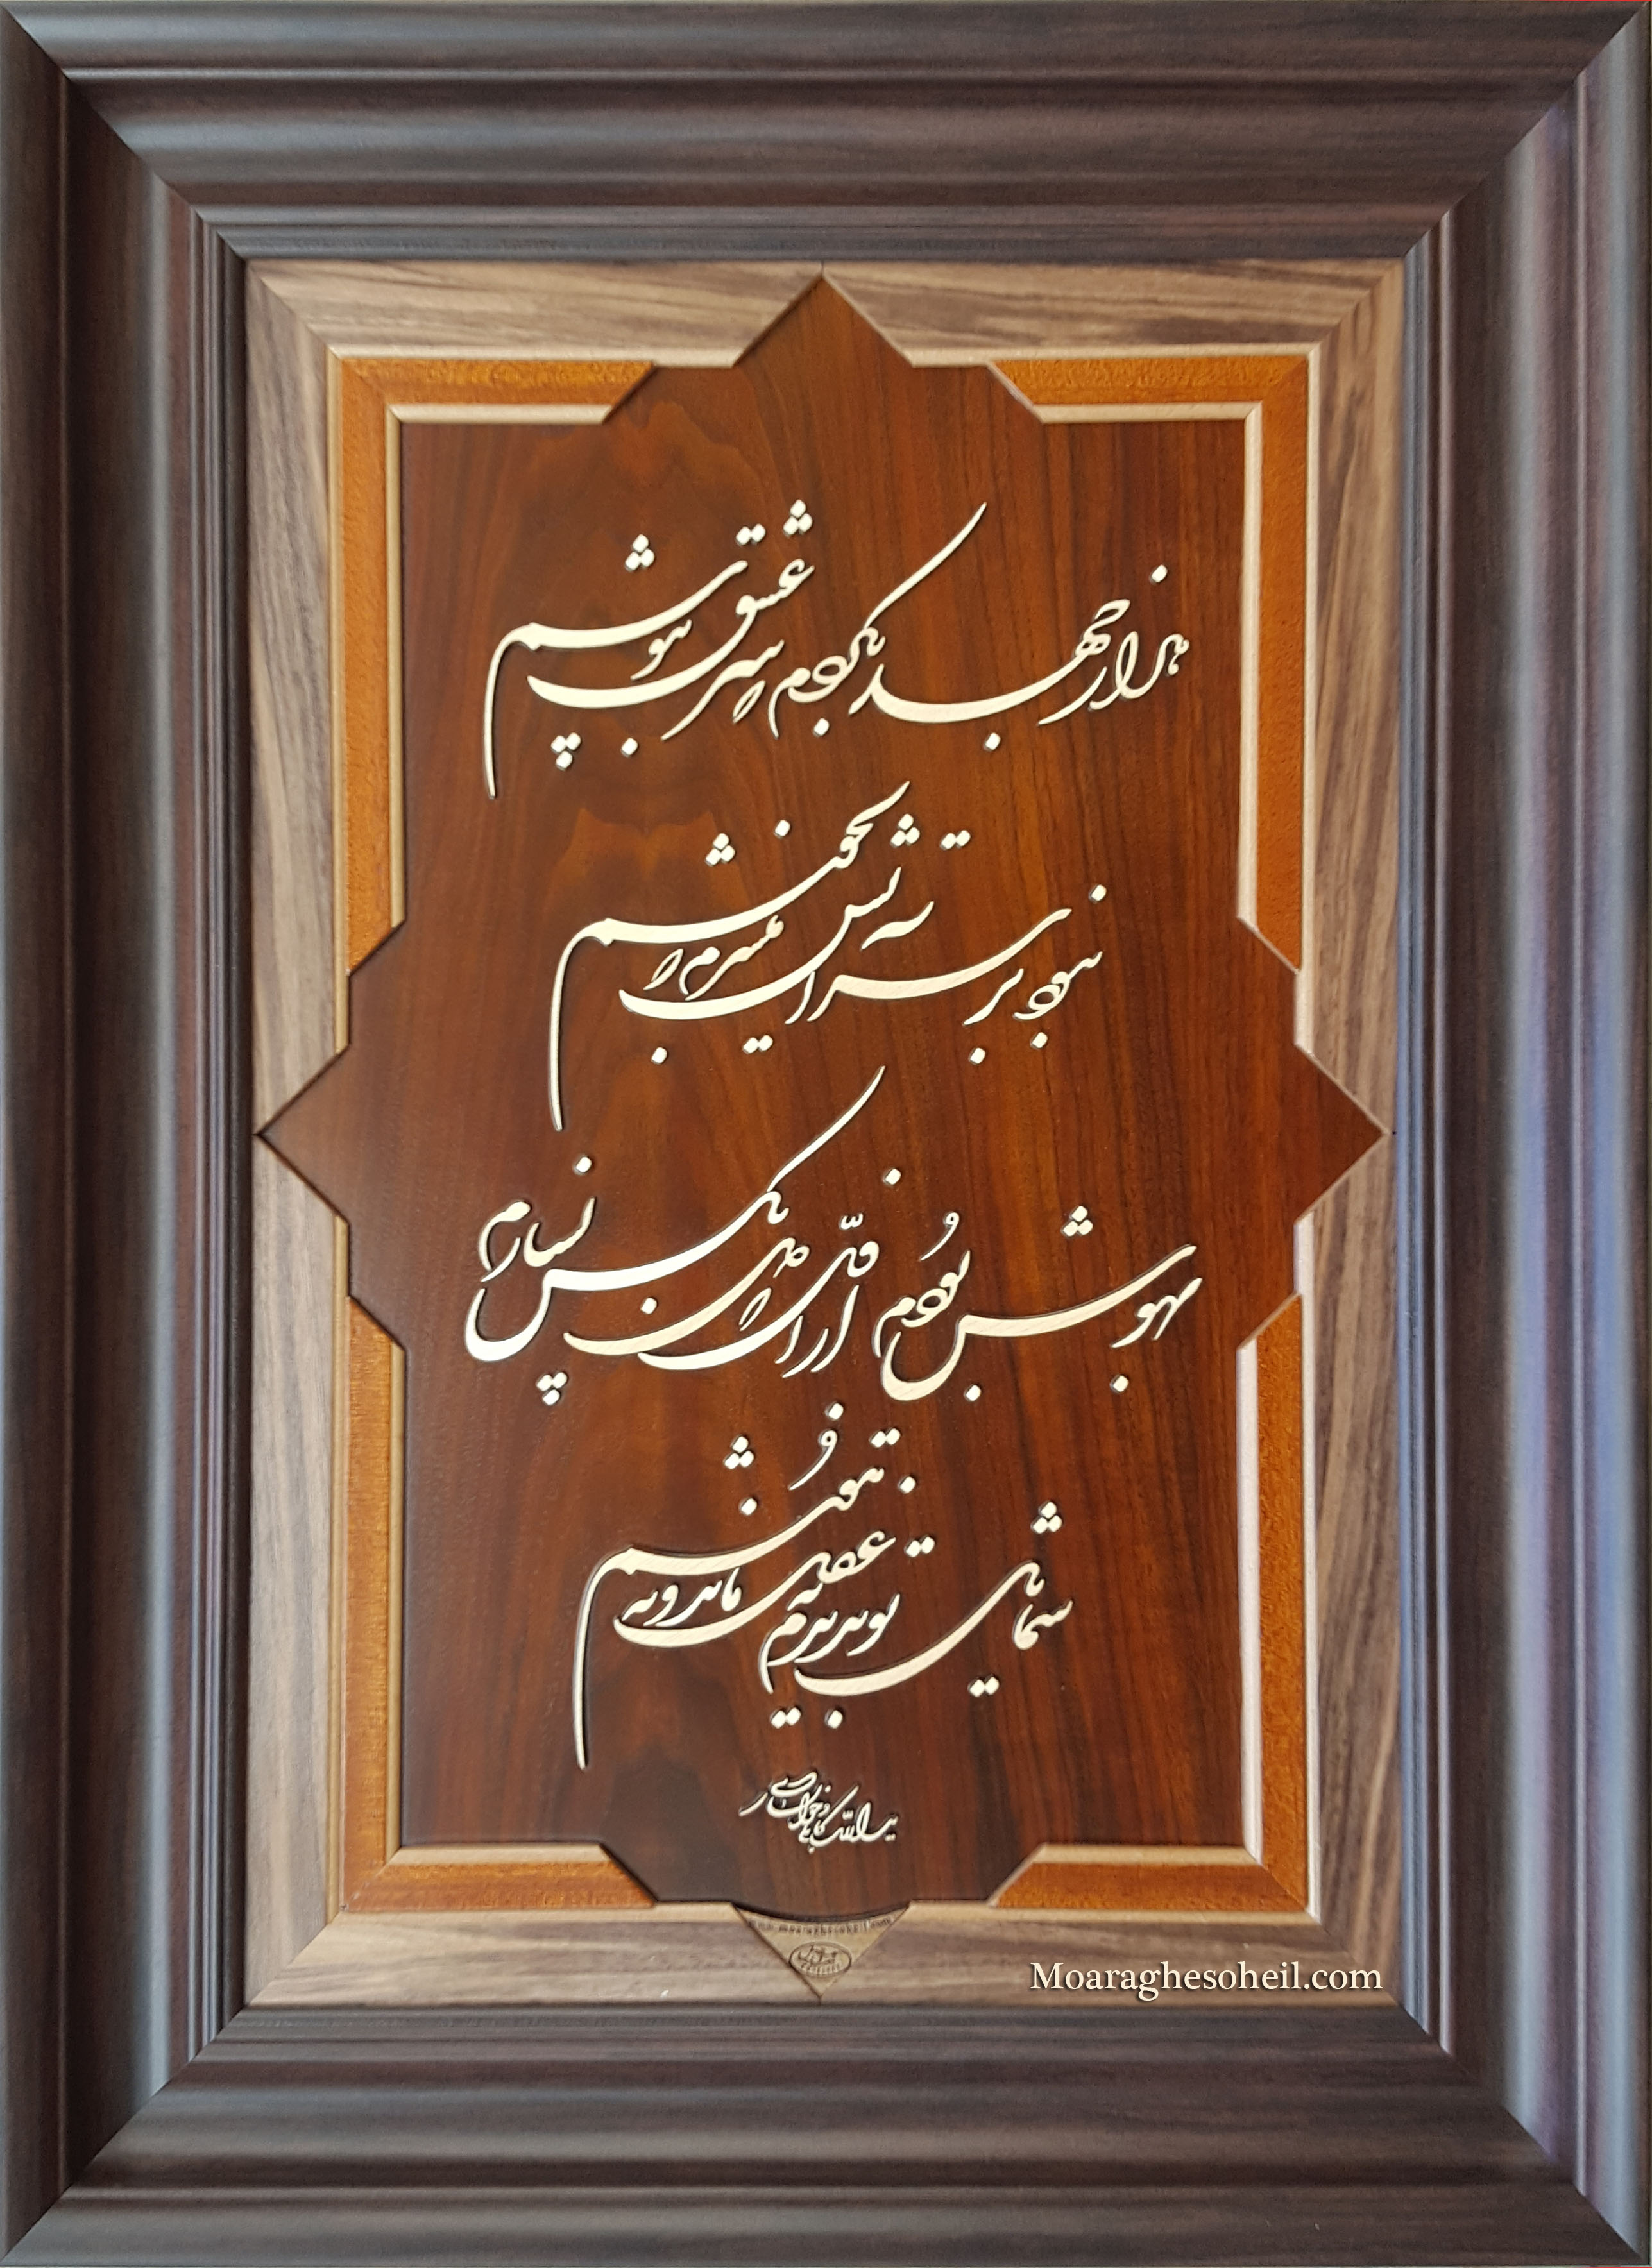 هزار جهد بکردم که سر عشق بپوشم
نبود بر سر آتش میسرم که نجوشم
بهوش بودم از اول که دل بکس نسپارم
شمایل تو بدیدم نه عقل ماند و نه هوشم
یدالله کابلی خوانساری
Moaraghesoheil.com